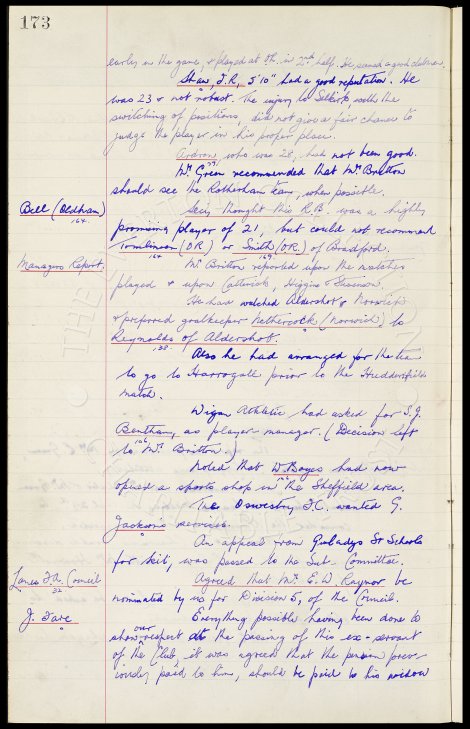 173
early in the game, & played at O.R. in 2nd half. He seemed a good clubman.
Shaw, J.R., 5'10" had a good reputation. He
was 23 & not robust. The injury to Selkirk with the
switching of positions, did not give a fair chance to
judge the player in his proper place.
Ardron, who was 28, had not been good.
Mr. Green recommended that Mr. Britton
should see the Rotherham team, when possible.
Bell (Oldham)
164.
thought this R.B. was a highly
promising player of 21, but could not recommend
Tomlinson (OR) or Smith (OR.) of Bradford.
164 169.
Managers Report.
Mr. Britton reported upon the matches
played & upon Catterick, Higgins &
He had watched Aldershot v Norwich
& preferred goalkeeper Nethercock (Norwich) to
Reynolds of Aldershot.
138.
Also he had arranged for the team
to go to Harrogate prior to the Huddersfield
match.
Wigan Athletic had asked for S.J.
Bentham, as player-manager. (Decision left
to Mr. Britton.
Noted that W. Boyes had now
opened a sports shop in the Sheffield area.
The Oswestry F.C. wanted G.
Jackson's services.
An appeal from Gwladys St Schools
for kit, was passed to the Sub-Committee.
Lancs F.A. Council
22
Agreed that Mr. E.W. Raynor be
nominated by us for Division 5, of the Council.
J. Fare
Everything possible having been done to
show our respect at the passing of this ex-servant
of the Club, it was agreed that the pension prev-
iously paid to him, should be paid to his widow